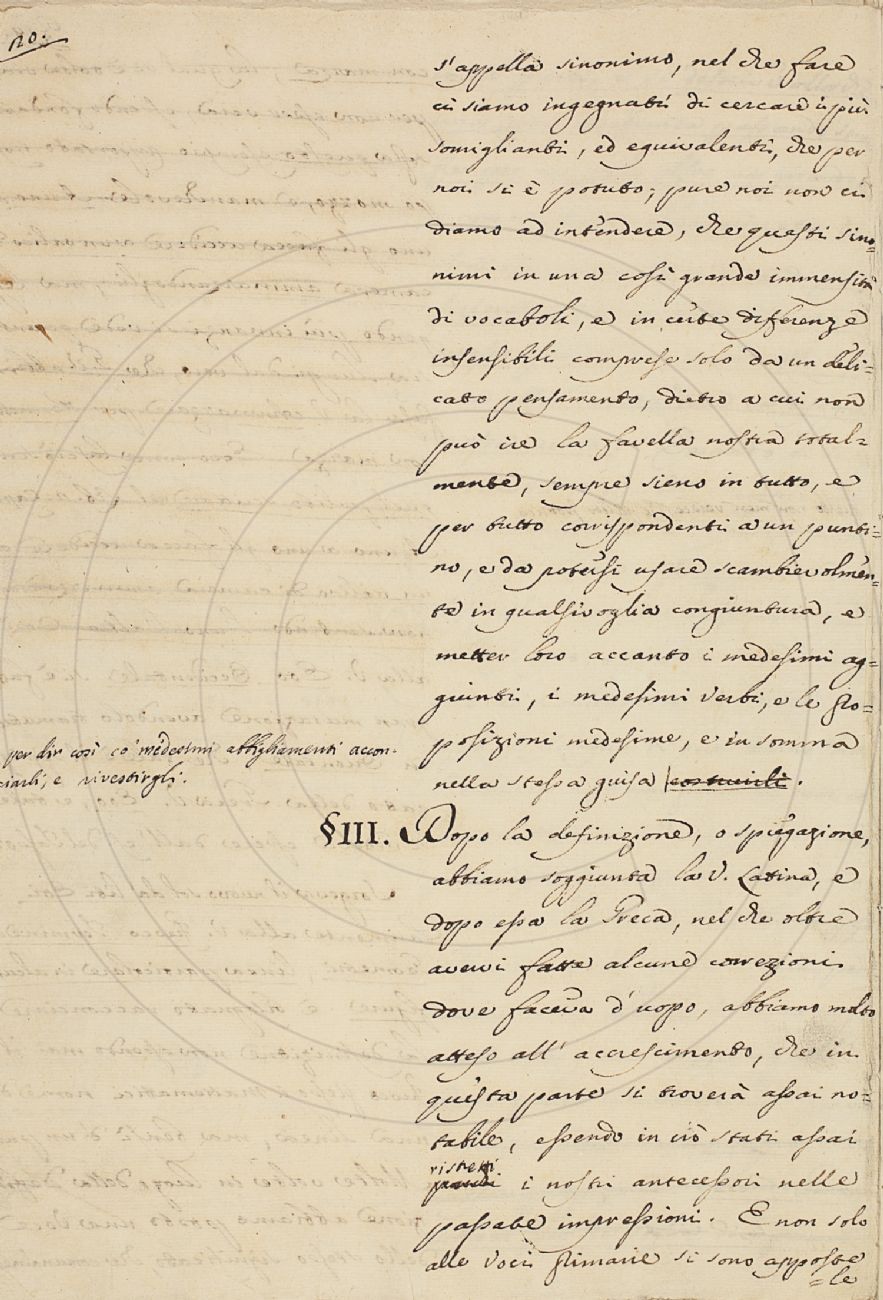 120.
s'appella sinonimo, nel che fare
ci siamo ingegnati di cercare i più
somiglianti, ed equivalenti, che per
noi si è potuto; pure noi non ci
diamo ad intendere, che questi sino=
nimi in una così grande immensità
di vocaboli, e in certe differenze
insensibili comprese solo da un deli=
cato pensamento, dietro a cui non
può ire la favella nostra total=
mente, sempre sieno in tutto, e
per tutto corrispondenti a un punti=
no, e da potersi usare scambievolmen=
te in qualsivoglia congiuntura, e
metter loro accanto i medesimi ag=
giunti, i medesimi verbi, e le pro=
posizioni medesime, e in somma
nella stessa guisa costruirli.
per dir così co' medesimi abbigliamenti accon-
ciarli, e rivestirgli.
§III. Dopo la definizione, o spiegazione,
abbiamo soggiunta la V. Latina, e
dopo essa la Greca, nel che oltre
avervi fatte alcune correzioni
dove faceva d'uopo, abbiamo molto
atteso all' accrescimento, che in
questa parte si troverà assai no=
tabile, essendo in ciò stati assai
ristretti
i nostri antecessori nelle
passate impressioni. E non solo
alle voci primarie si sono apposte
=le